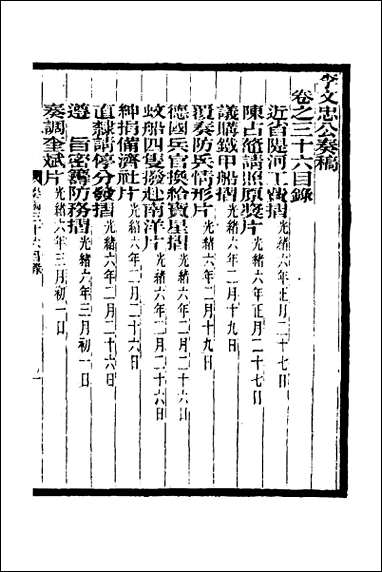 李文忠公奏稿
卷之三十六目錄
近省隄河工費摺光緒六年正月二十七日
陳占鼇請照原獎片光緒六年正月二十七日
議購鐵甲船摺光緒六年二月十九日
覆奏防兵情形片光緒六年二月十九日
德國兵官換給寶星摺光緒六年二月二十六日
蚊船四隻撥赴南洋片光緒六年二月二十六日
紳捐備濟社片光緒六年二月二十六日
直隸請停分發摺光緒六年二月二十六日
遵 旨密籌防務摺光緒六年三月初一日
奏調奎斌片光緒六年三月初一日
奏稿三十六目錄 一